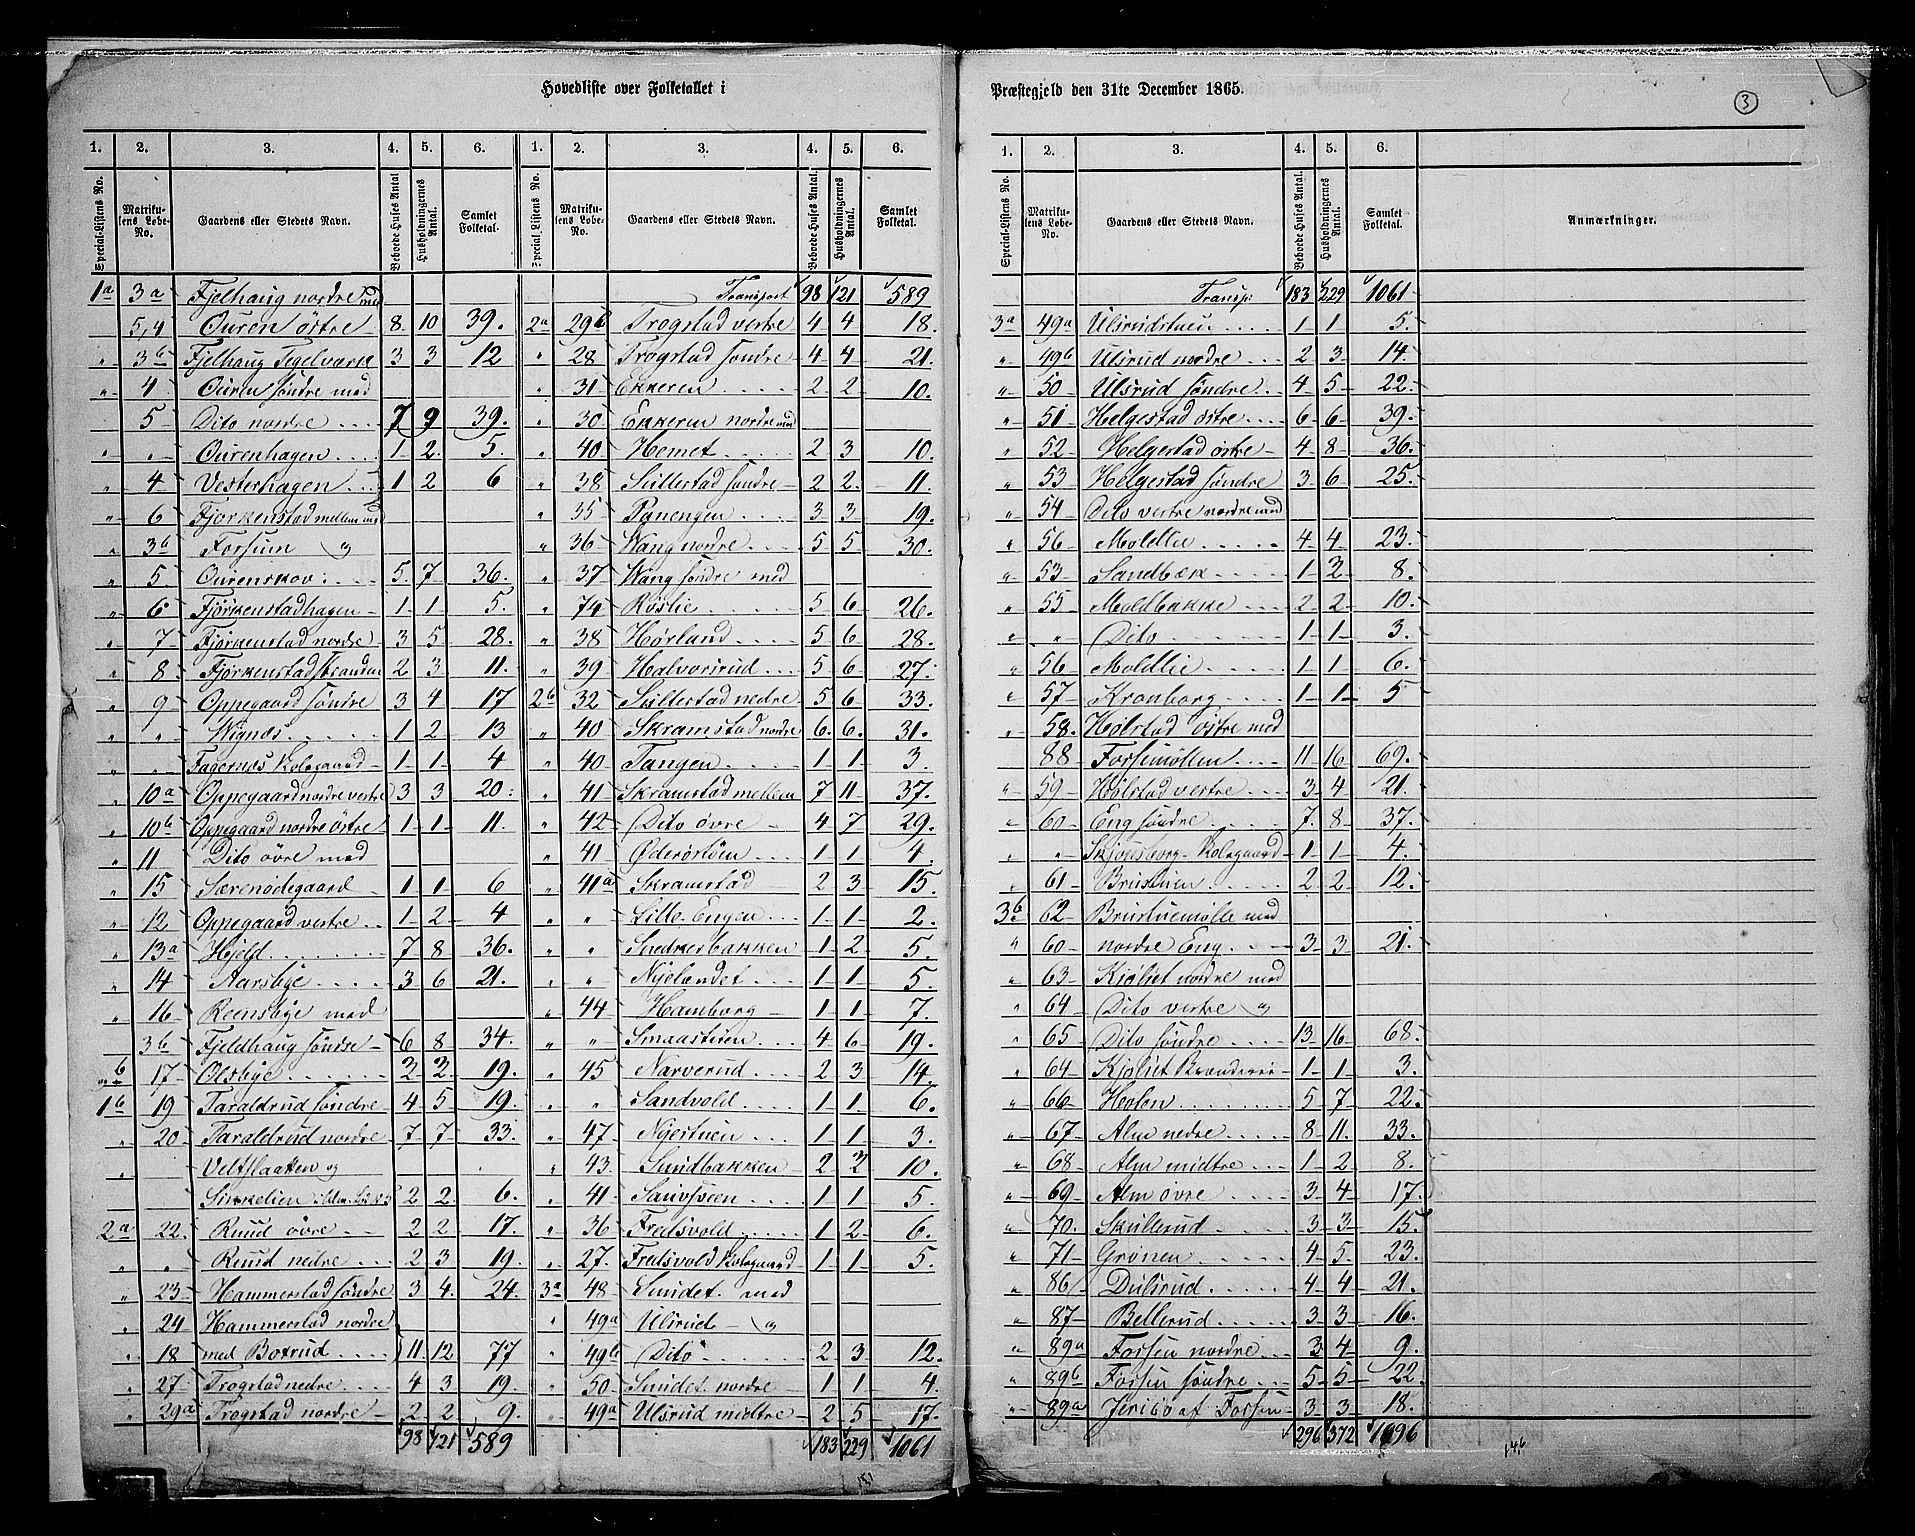 Hovedliste over Folketallet i
1. 2. 3. 4. 5. 6. 1. 2. 3. 4. 5. 6.
Special-Listens No. Matrikulens Løbe-No. Gaardens eller Stedets Navn. Beboede Huses Antal Husholdningernes Antal. Samlet Folketal. Special Listens No. Matrikulens Løbe-No. Gaardens eller Stedets Navn. Beboede Huses Antal. Husholdningernes Antal. Samlet Folketal.
1a 3a Fjelhaug nordre med
5,4 Ouren østre 8 10 39.
„ 3b Fjelhaug Tegelværk 3 3 12
„ 4 Ouren søndre med
5 Dito nordre .... 7 9 39.
„ „ Ourenhagen .... 1 2. 5.
„ 4 Vesterhagen ... 1 2 6
„ 6 Fjørkenstad mellem med
„ 3b Forsum og
„ 5 Ourenskov . 5. 7 36.
„ 6 Fjørkenstadhagen 1 1 5.
„ 7 Fjørkenstad nordre 3 5 28.
„ 8. 2 3 11.
„ 9 Oppegaard søndre 3 4 17
„ „ Wignæs ..... 1 2 13
„ „ Fagernæs Kolsgaard 1 1 4
„ 10a Oppegaard nordre vestre 3 3 20.
„ 10b Oppegaard nordre østre 1 1 11.
„ 11 Dito øvre med
„ 15 Særenødegaard 1 1 6
„ 12 Oppegaard vestre 1 2 4
„ 13a Hjeld ........ 7 8 36.
„ 14 Aarsbye .... 3 6 21.
„ 16 Reensbye med
3b Fjeldhaug søndre 6 8 34.
og b 17 Olsbye ...... 2 2 19.
1b 19 Taraldrud søndre 4 5 19.
„ 20 Taraldrud nordre 7 7 33.
„ Veltslaatten og
2 2 6.
2a 22. Ruud øvre 2 2 17.
„ „ Ruud nedre 2 3 19.
„ 23 Hammerstad søndre 3 4. 24.
„ 24 Hammerstad nordre
„ 18 med Botrud .... 11. 12. 77
„ 27 Trogstad nedre .... 4 3 19.
„ 29a Trogstad nordre 2 2 9.
98 121 589
Transport 98 121 589
2a 29b Trogstad vestre 4 4 18.
„ 28 Trogstad søndre 4 4 21.
„ 31 Ekkeren ..... 2 2 10.
„ 30 Ekkeren nordre med
„ 40 Hemet ...... 2 3 10.
„ 38 Sillestad søndre 2 2. 11.
„ 35 Panengen .... 3 3 19.
„ 36 Wang nordre .... 5 5 30.
„ 37 Wang søndre med
„ 74 Røslie ..... 5 6 26.
„ 38 Hørland ..... 5 6 28.
„ 39 Halvorsrud .... 5 6 27.
2b 32 Sillestad nedre 5 6 33.
„ 40 Skramstad nordre 6. 6. 31.
„ 40 Tangen ..... 1 1 3.
„ 41 Skramstad mellem 7 11 37.
„ 42 Dito øvre 4 7 29.
„ 41 1 1 4.
„ 41a Skramstad 2 3 15.
„ „ Lille-Engen ... 1 1 2.
„ „ Snekkerbakken 1 2 5.
„ „ Nyelandet .... 1 1 5.
„ 44 Hamborg 1 1 7.
„ „ Smaastuen .... 4 6 19.
„ 45 Narverud .... 2 3 14.
„ „ Sandvold .... 1 1 6.
„ 47 Nyestuen .... 1 1 3.
„ 43. Sundbakken .. 2 2 10.
„ 41 1 1 5.
„ 36 Fredsvold .... 1 2 6.
„ 27. Fredsvold Kolsgaard 1 1 5.
3a 48 Sundet. med
„ 49a Ulsrud og
„ 49b Dito ...... 2 3 12.
„ 50 Sundet nordre 1 1 4.
„ 49a Ulsrud midtre 2 5 17.
183 229 1061
151
Præstegjeld den 31te December 1865.
3
1. 2. 3. 4. 5. 6.
Special-Listens No. Matrikulens Løbe-No. Gaardens eller Stedets Navn. Beboede Huses Antal. Husholdningernes Antal. Samlet Folketal. Anmærkninger.
Transp: 183 229 1061
3a 49a Ulsrudstuen .... 1 1 5.
„ 49b Ulsrud nordre ... 2 3 14.
„ 50 Ulsrud søndre .. 4 5 22.
„ 51 Helgestad østre ... 6 6 39.
„ 52 Helgestad østre 4 8 36.
„ 53 Helgestad søndre 3 6 25.
„ 54 Dito vestre nordre med
„ 56 Moldlie ..... 4 4 23.
„ 53 Sandbæk .... 1 2 8.
„ 55 Moldbakke .... 2 2 10.
„ „ Dito ..... 1 1 3.
„ 56 Moldlie ..... 1 1 6.
„ 57 Kronborg .... 1 1 5
„ 58. Hølstad østre med
88 Forsemøllen .... 11 16 69.
„ 59 Hølstad vestre .. 3 4 21.
„ 60 Eng søndre .... 7. 8 37.
„ „ 1 1 4.
„ 61 Brustuen .... 2 2 12.
3b 62 Brustuemølle med
„ 60 nordre Eng .... 3 3 21.
„ 63 Kjølset nordre med
„ 64 Dito vestre og
„ 65 Dito søndre ... 13 16 68.
„ 64 1 1 3.
„ 66 Holen ..... 5 7 22.
„ 67 Alm nedre .... 8 11. 33.
„ 68 Alm midtre 1 2 8.
„ 69 Alm øvre .... 3 4 17.
„ 70. Skullerud .... 3 3 15.
„ 71 Grønen ..... 4 5 23.
„ 86 Dulsrud ..... 4 4 21.
„ 87 Bellerud .... 3 3 16.
„ 89a Forsen nordre ... 3 4 9.
„ 89b Forsen søndre . 5 5 22.
„ 89a 3 3 18.
296 372
146